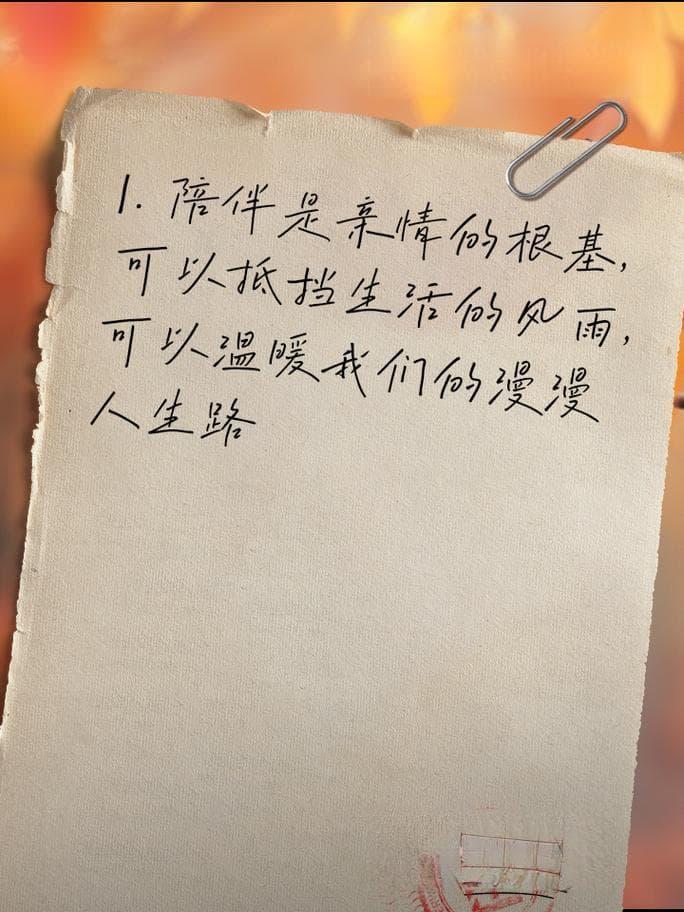 1. 陪伴是亲情的根基,
可以抵挡生活的风雨,
可以温暖我们的漫漫
人生路